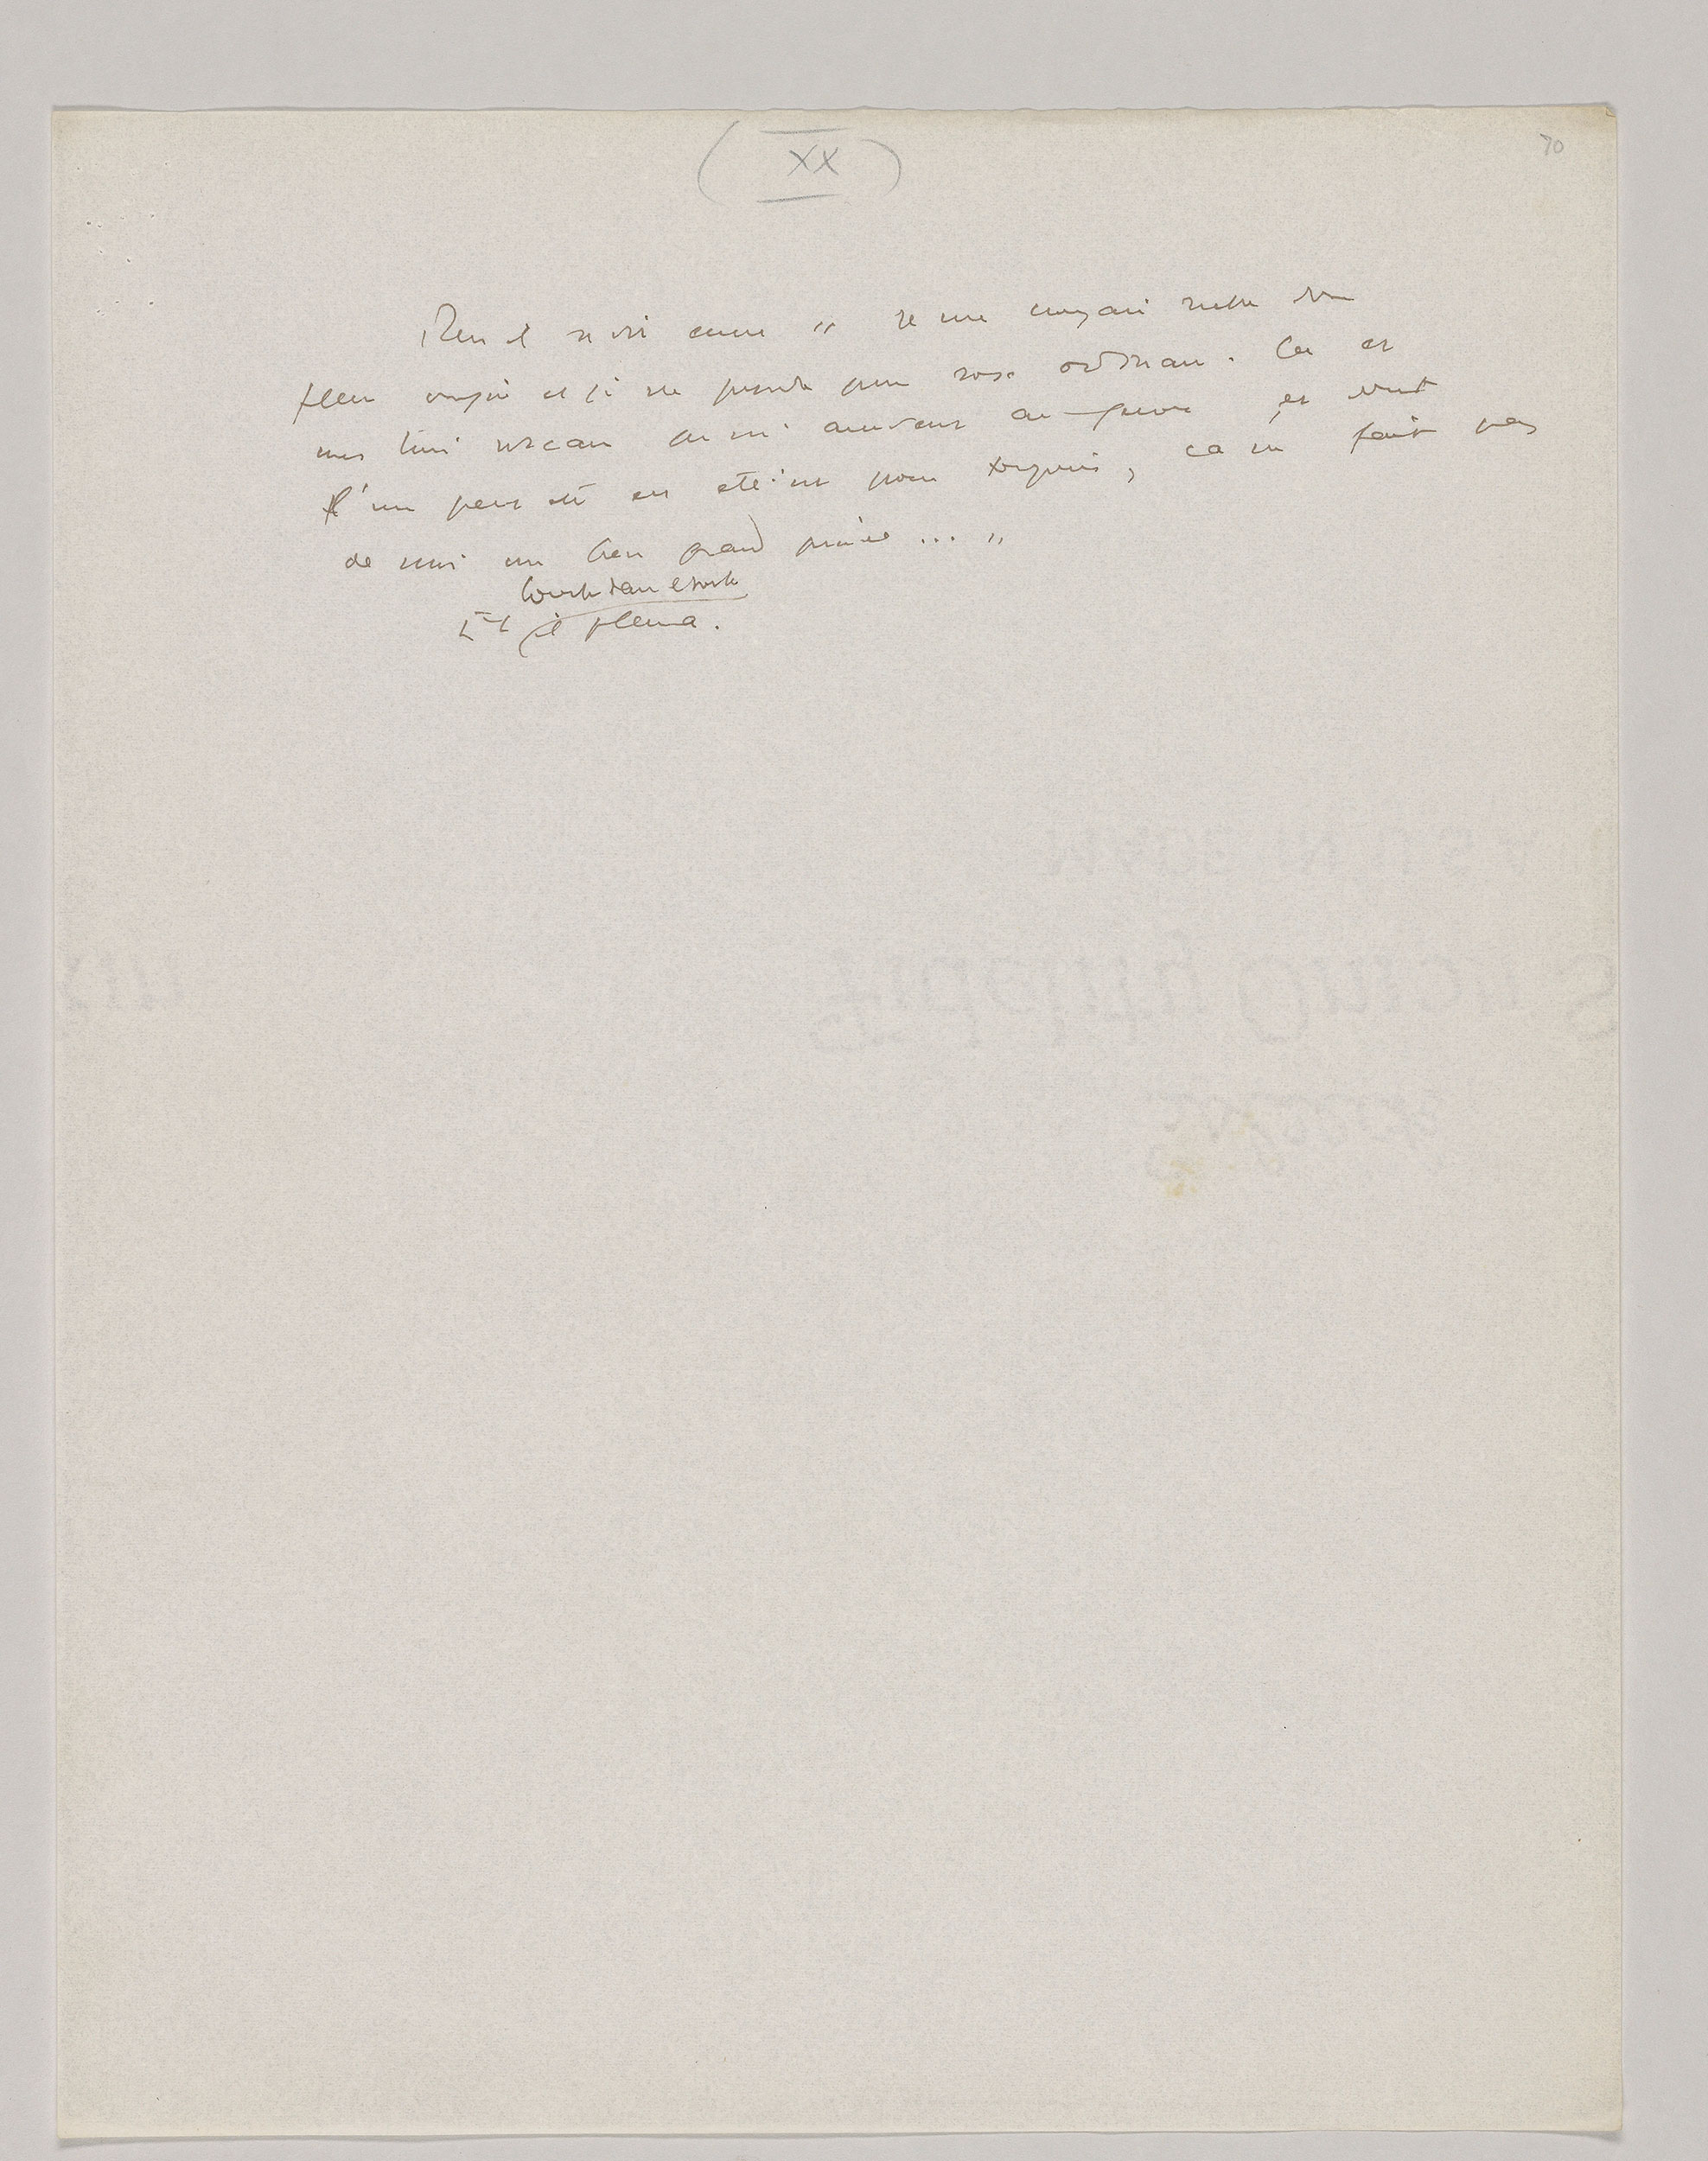 (XX)
70
Puis il se dit encore " Je me croyais riche d'une
fleur unique et je ne possède qu'une rose ordinaire. Ca et
mes trois volcans qui m'arrivent au genou et dont
l'un peut etre est éteint pour toujours, ca ne fait pas
de moi un bien grand prince ... "
couché dans l'herbe
Et il pleura.